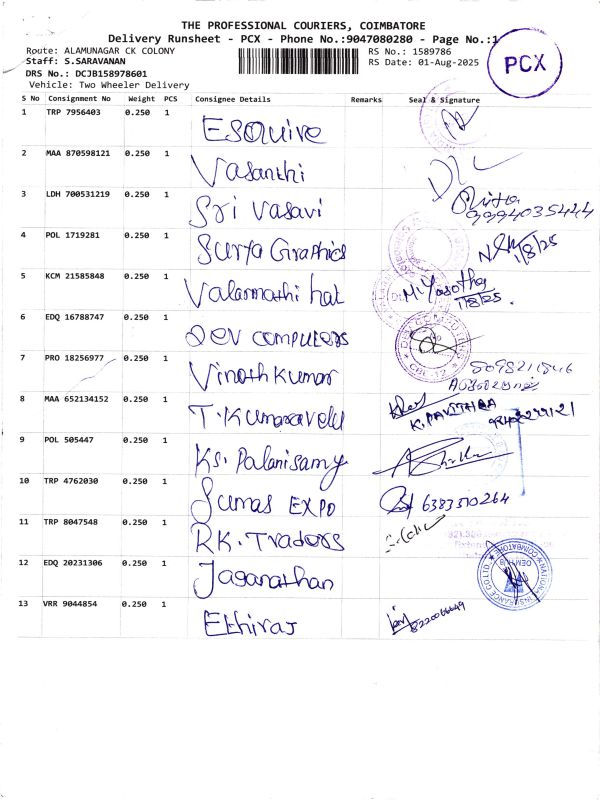 THE PROFESSIONAL COURIERS, COIMBATORE
Delivery Runsheet - PCX - Phone No.:9047080280 - Page No.:1
Route: ALAMUNAGAR CK COLONY
RS No.: 1589786
Staff: S.SARAVANAN
RS Date: 01-Aug-2025
PCX
DRS No.: DCJB158978601
Vehicle: Two Wheeler Delivery
S No Consignment No Weight PCS Consignee Details Remarks Seal & Signature
1 TRP 7956403 0.250 1 Esquire
2 MAA 870598121 0.250 1 Vasanthi
3 LDH 700531219 0.250 1 Sri Vasavi
9994035424
4 POL 1719281 0.250 1 Surya Graphics
1/8/25
5 KCM 21585848 0.250 1 Valarmathi
M. Yasotha
1/8/25.
6 EDQ 16788747 0.250 1 Dev computers
7 PRO 18256977 0.250 1 Vinoth Kumar
8 MAA 652134152 0.250 1 T. Kumaravelu
K. PAVITHRA
9 POL 505447 0.250 1 Ks. Palanisamy
10 TRP 4762030 0.250 1 Sumas EXPO
6383510264
11 TRP 8047548 0.250 1 RK. Traders
12 EDQ 20231306 0.250 1 Jaganathan
13 VRR 9044854 0.250 1 Ethiraj
8220066649